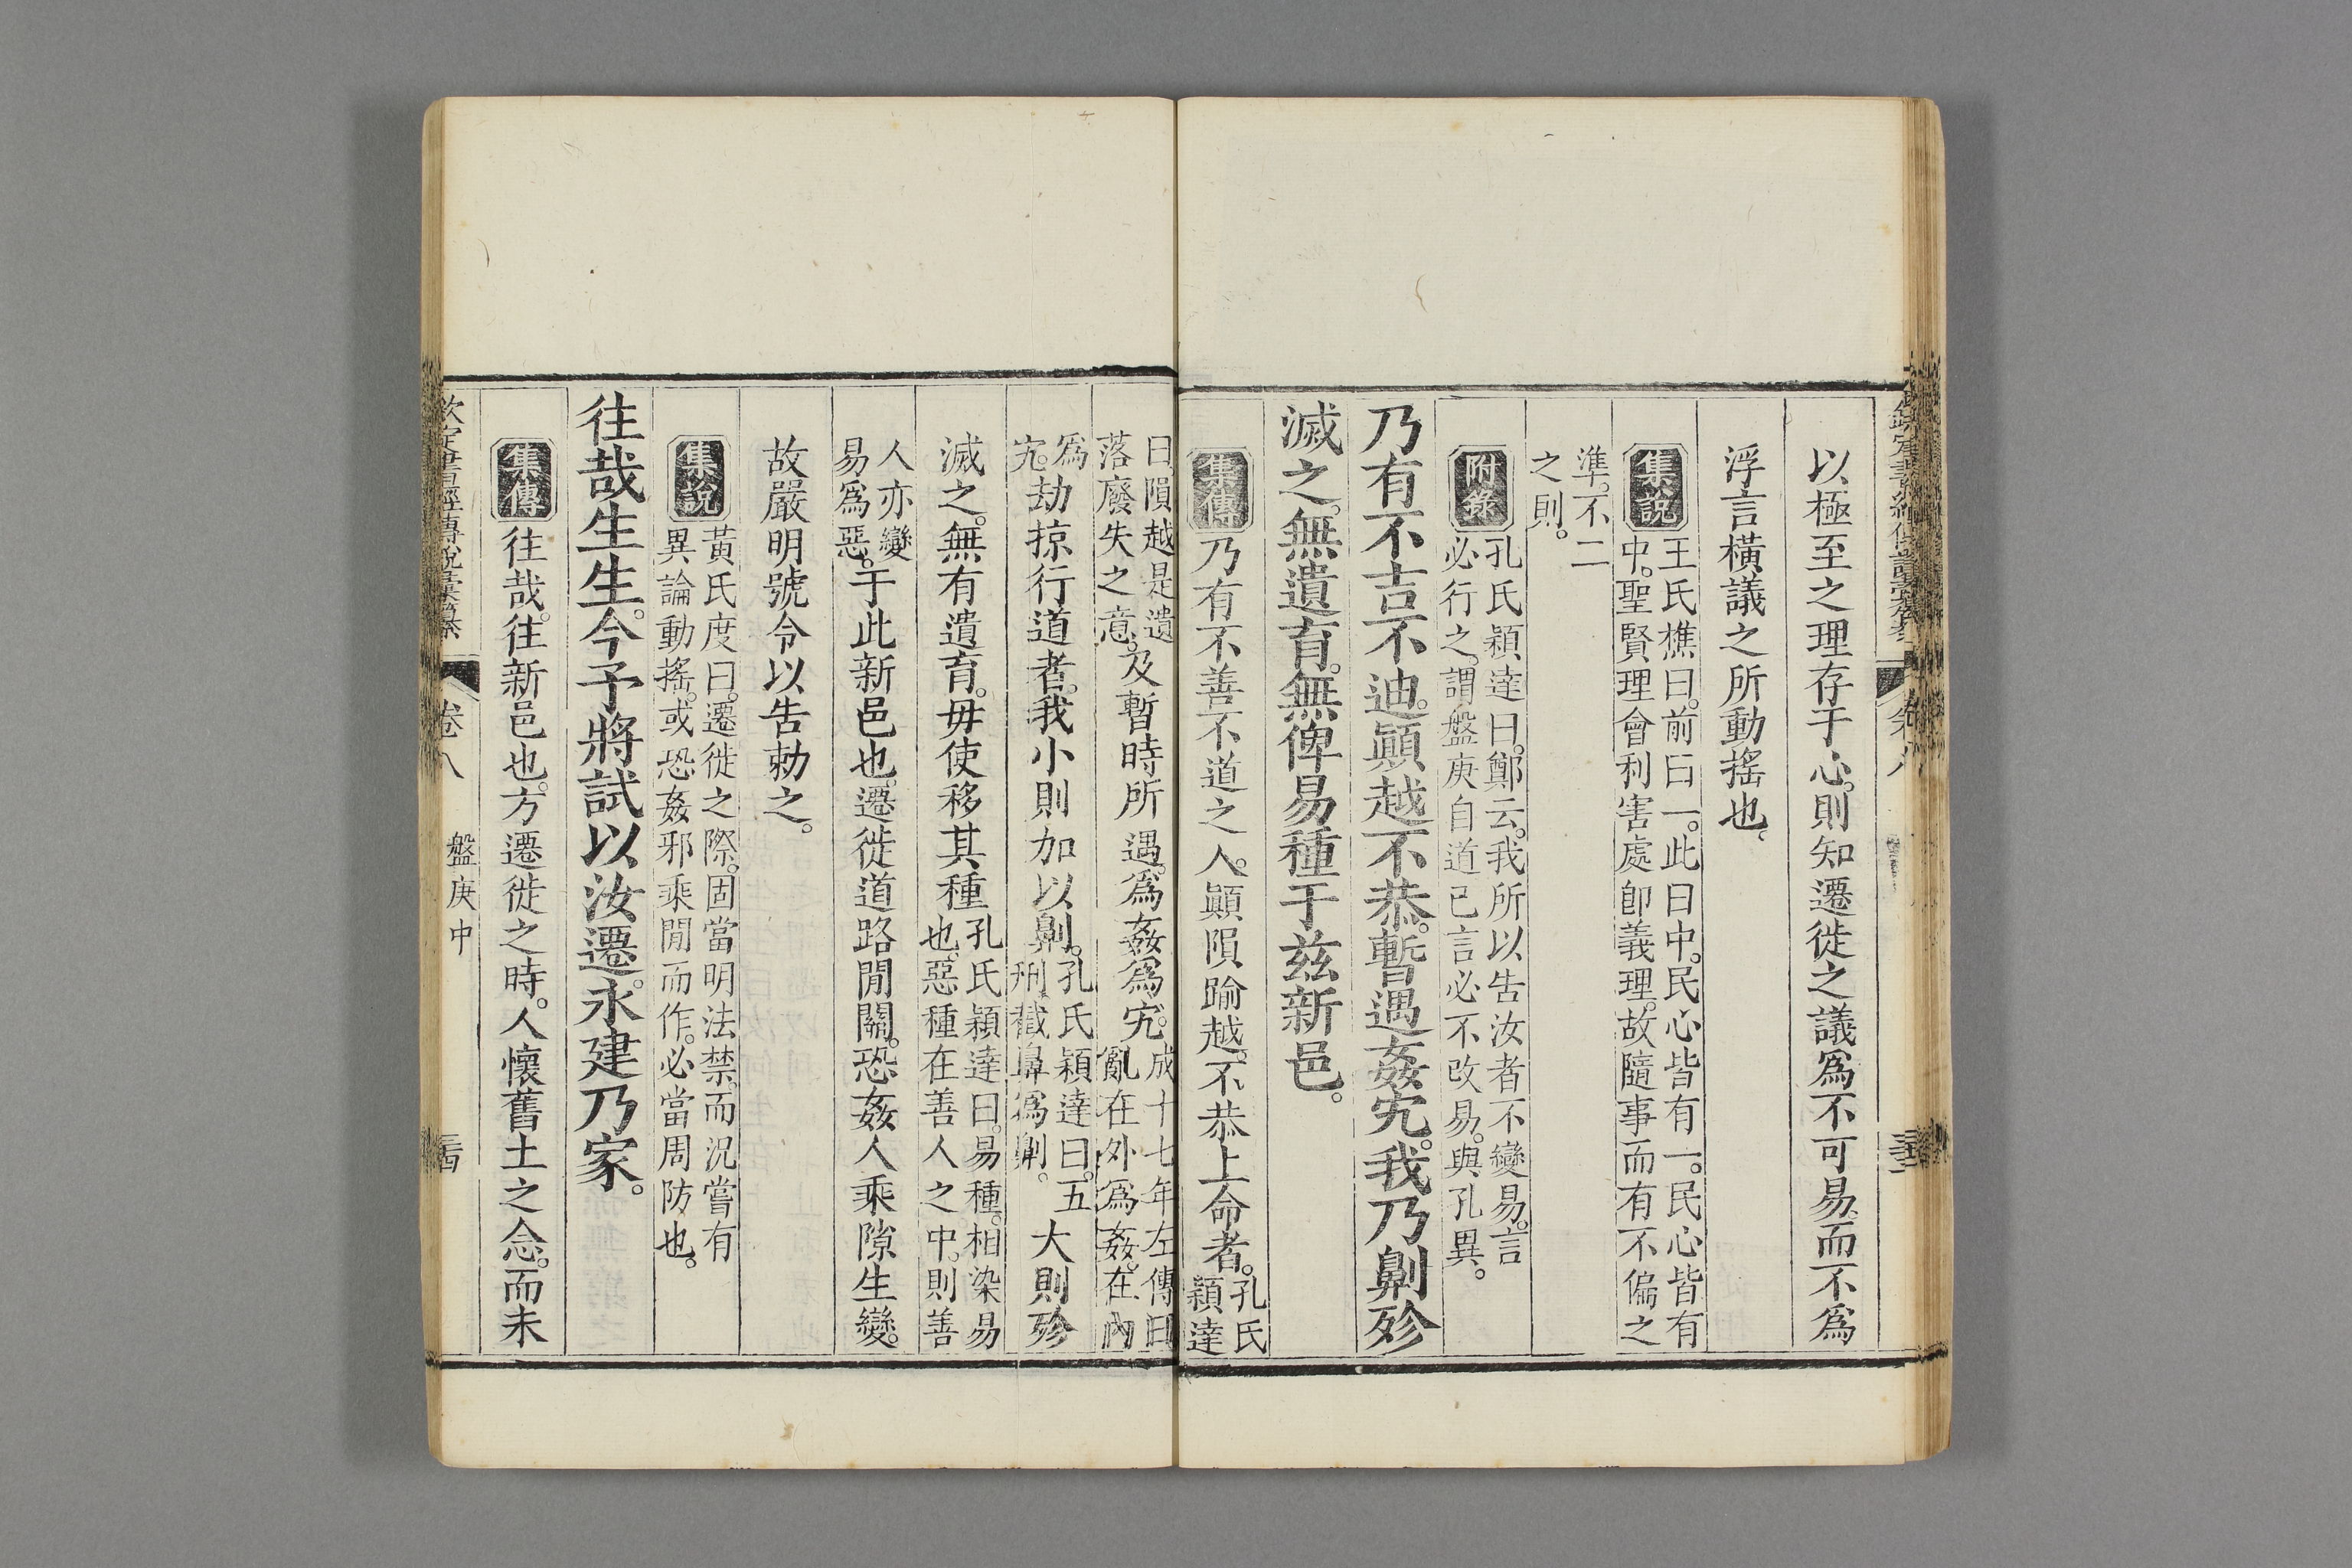 以極至之理存于心。則知遷徙之議爲不可易。而不爲
浮言橫議之所動搖也。
集說
王氏樵曰。前曰一。此曰中。民心皆有一。民心皆有
中。聖賢理會利害處卽義理。故隨事而有不偏之
準。不二
之則。
附錄
孔氏穎達曰。鄭云。我所以告汝者不變易。言
必行之。謂盤庚自道已言必不改易。與孔異。
乃有不吉不迪。顚越不恭。暫遇姦宄。我乃劓殄
滅之。無遺育。無俾易種于茲新邑。
集傳
乃有不善不道之人。顚隕踰越。不恭上命者。
孔氏
穎達
曰隕越是遺
落廢失之意。
及暫時所遇。爲姦爲宄。
成十七年左傳曰
亂在外爲姦。在內
爲
宄。
劫掠行道者。我小則加以劓。
孔氏穎達曰。五
刑截鼻爲劓。
大則殄
滅之。無有遺育。毋使移其種
孔氏穎達曰。易種。相染易
也。惡種在善人之中。則善
人亦變
易爲惡。
于此新邑也。遷徙道路閒關。恐姦人乘隙生變。
故嚴明號令以告勅之。
集說
黃氏度曰。遷徙之際。固當明法禁。而況嘗有
異論動搖。或恐姦邪乘閒而作。必當周防也。
往哉生生。今予將試以汝遷。永建乃家。
集傳
往哉。往新邑也。方遷徙之時。人懷舊土之念。而未
欽定書經傳說彙纂
卷八
盤庚中